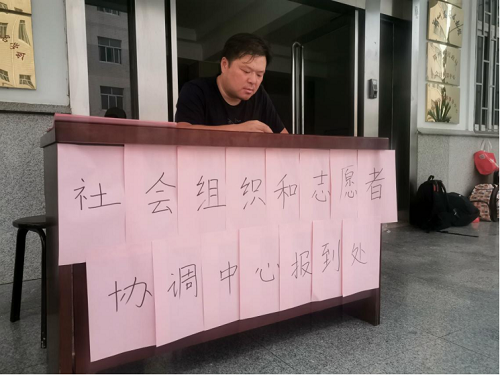 社会组织和志愿者
协调中心报到处